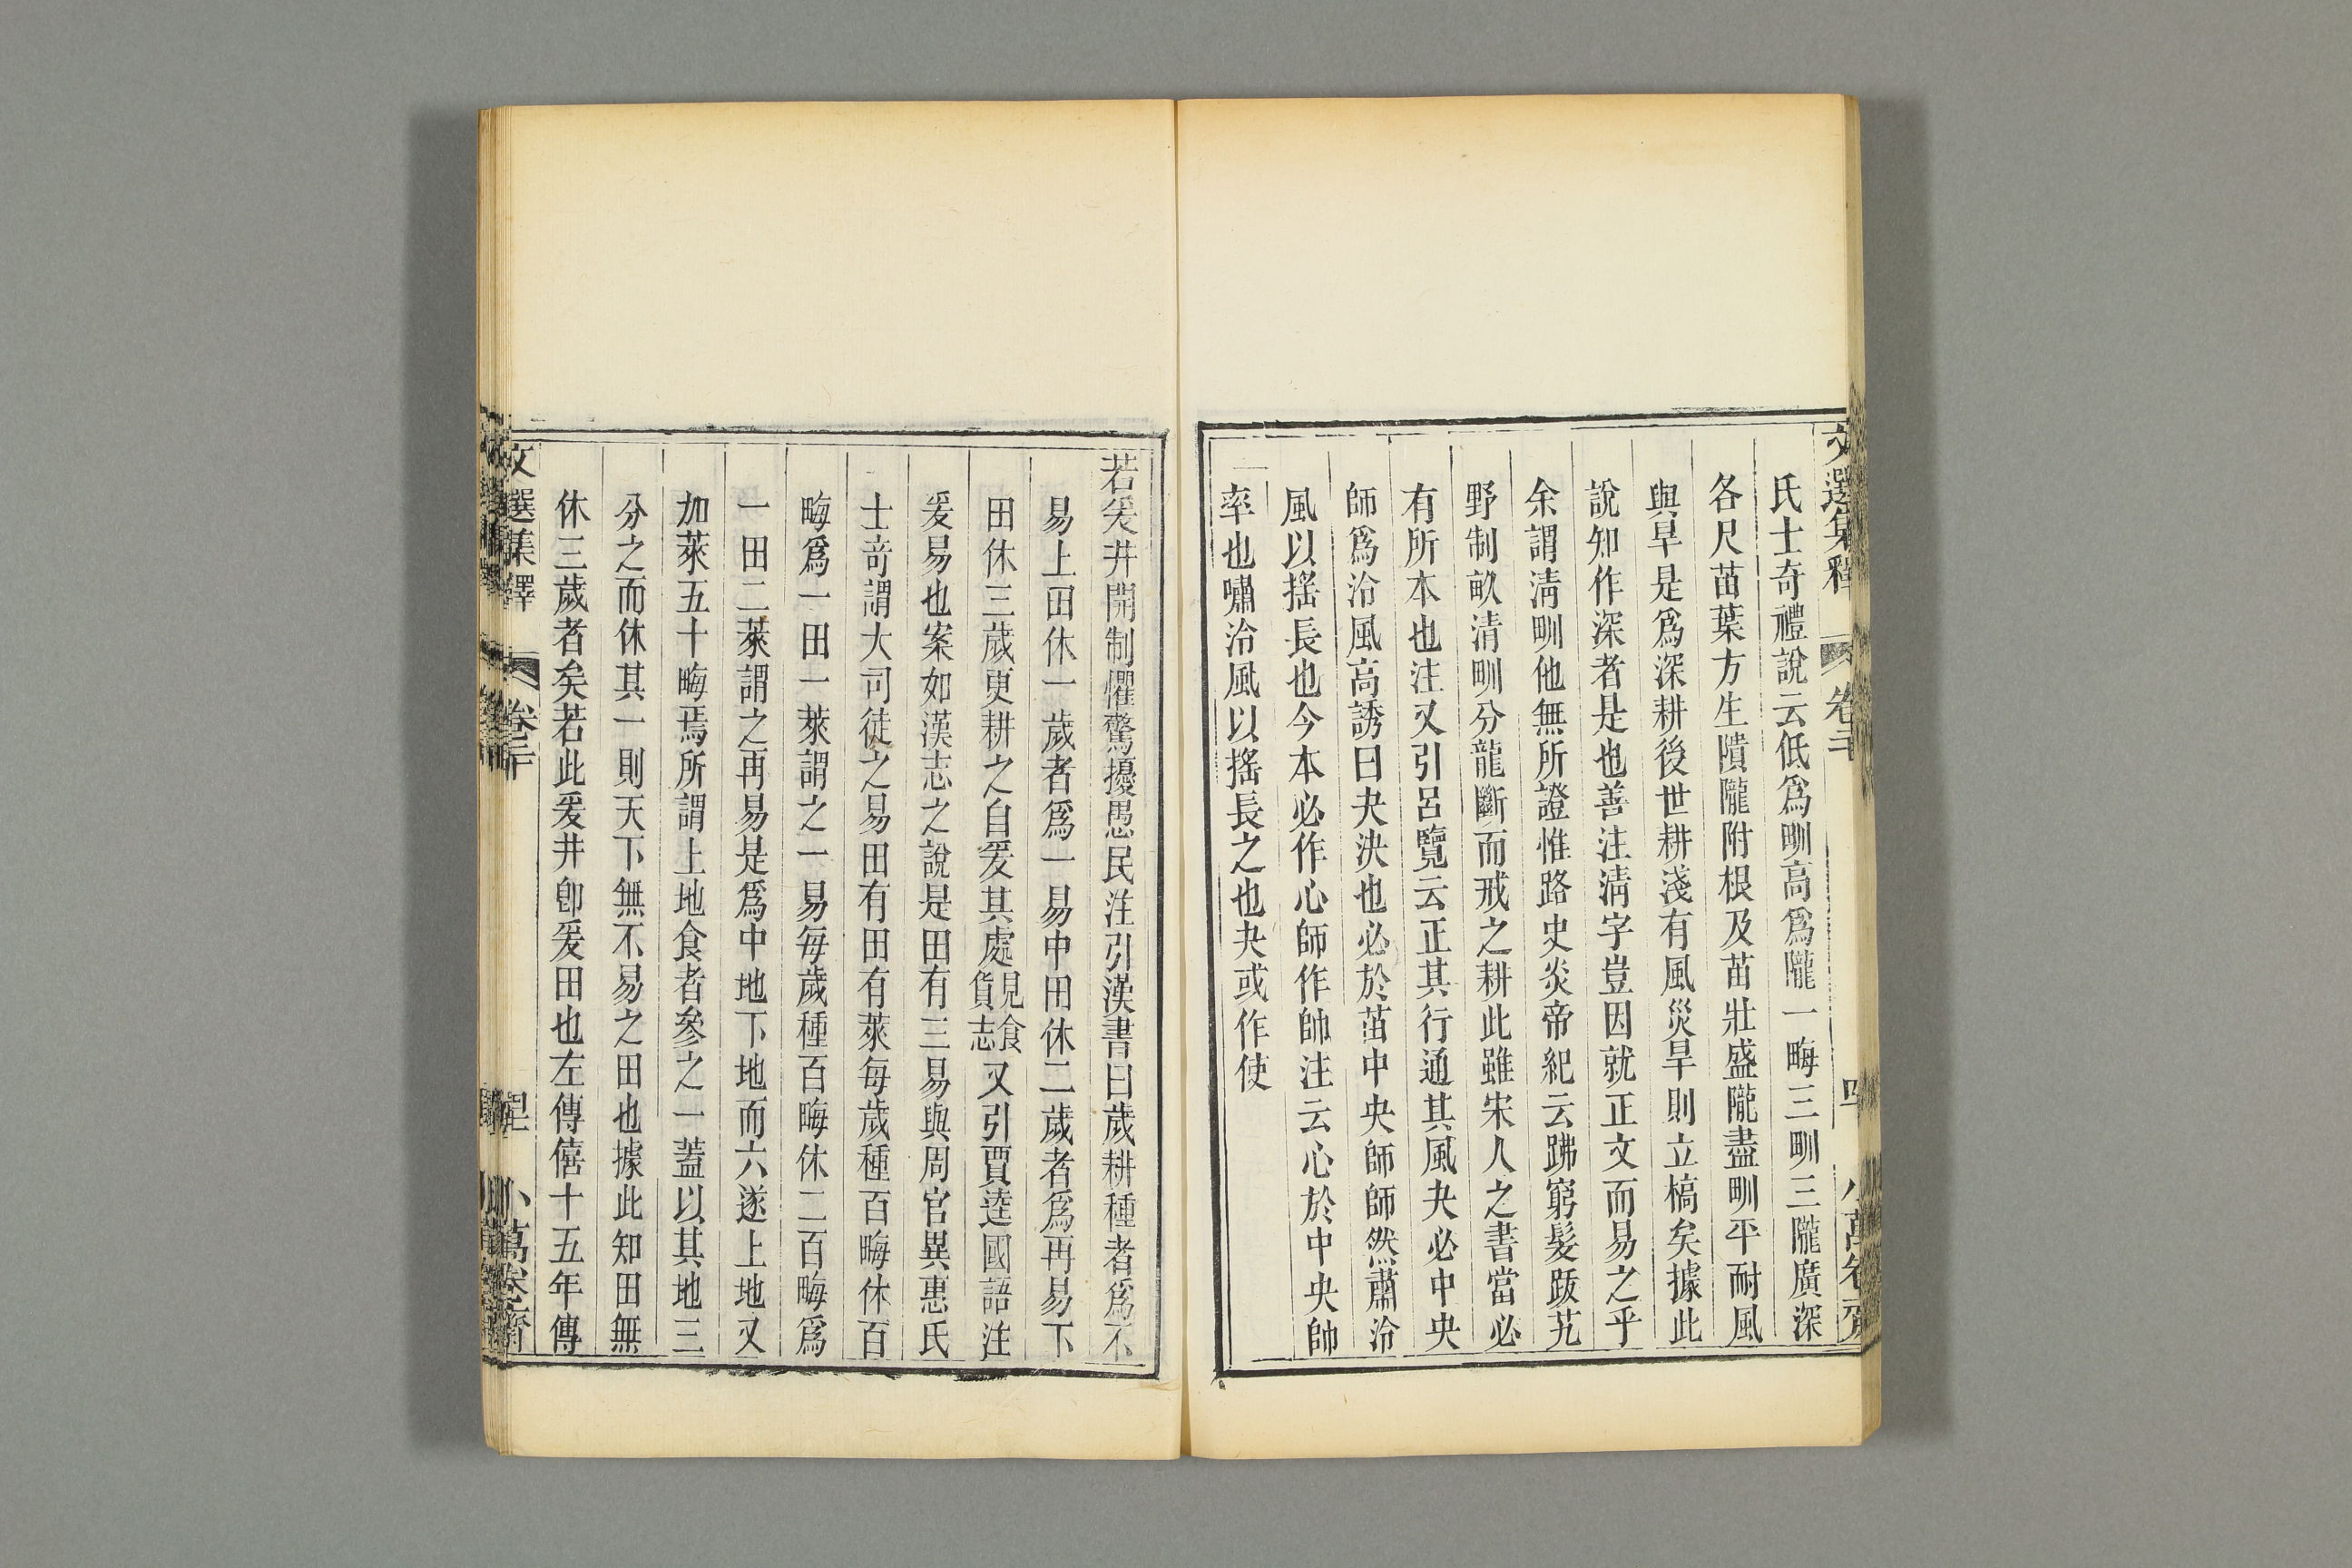 文選集釋 卷二十 四 小萬卷齋
氏士奇禮說云低爲甽高爲隴一畮三甽三隴廣深
各尺苗葉方生隤隴附根及苗壯盛隴盡甽平耐風
與旱是爲深耕後世耕淺有風災旱則立槁矣據此
說知作深者是也善注淸字豈因就正文而易之乎
余謂淸甽他無所證惟路史炎帝紀云踈窮髮跋艽
野制畝清甽分龍斷而戒之耕此雖宋人之書當必
有所本也注又引呂覽云正其行通其風夬必中央
師爲泠風高誘曰夬決也必於苗中央師師然肅泠
風以搖長也今本必作心師作帥注云心於中央帥
率也嘯泠風以搖長之也夬或作使
若爰井開制懼驚擾愚民注引漢書曰歲耕種者爲不
易上田休一歲者爲一易中田休二歲者爲再易下
田休三歲更耕之自爰其處見食貨志又引賈逵國語注
爰易也案如漢志之說是田有三易與周官異惠氏
士奇謂大司徒之易田有田有萊每歲種百畮休百
畮爲一田一萊謂之一易每歲種百畮休二百畮爲
一田二萊謂之再易是爲中地下地而六遂上地又
加萊五十畮焉所謂上地食者參之一蓋以其地三
分之而休其一則天下無不易之田也據此知田無
休三歲者矣若此爰井卽爰田也左傳僖十五年傳
文選集釋 卷二十 小萬卷齋